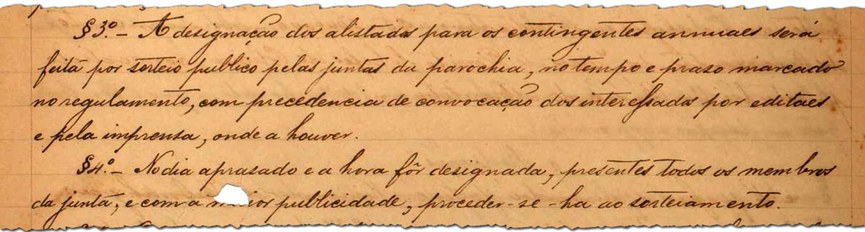 § 3º - A designação dos alistados para os contingentes annuaes será
feita por sorteio publico pelas juntas da parochia, no tempo e praso marcado
no regulamento, com precedencia de convocação dos interessados por editaes
e pela imprensa, onde a houver.
§ 4º - No dia aprasado e a hora fôr designada, presentes todos os membros
da junta, e com a publicidade, proceder-se-ha ao sorteiamento.